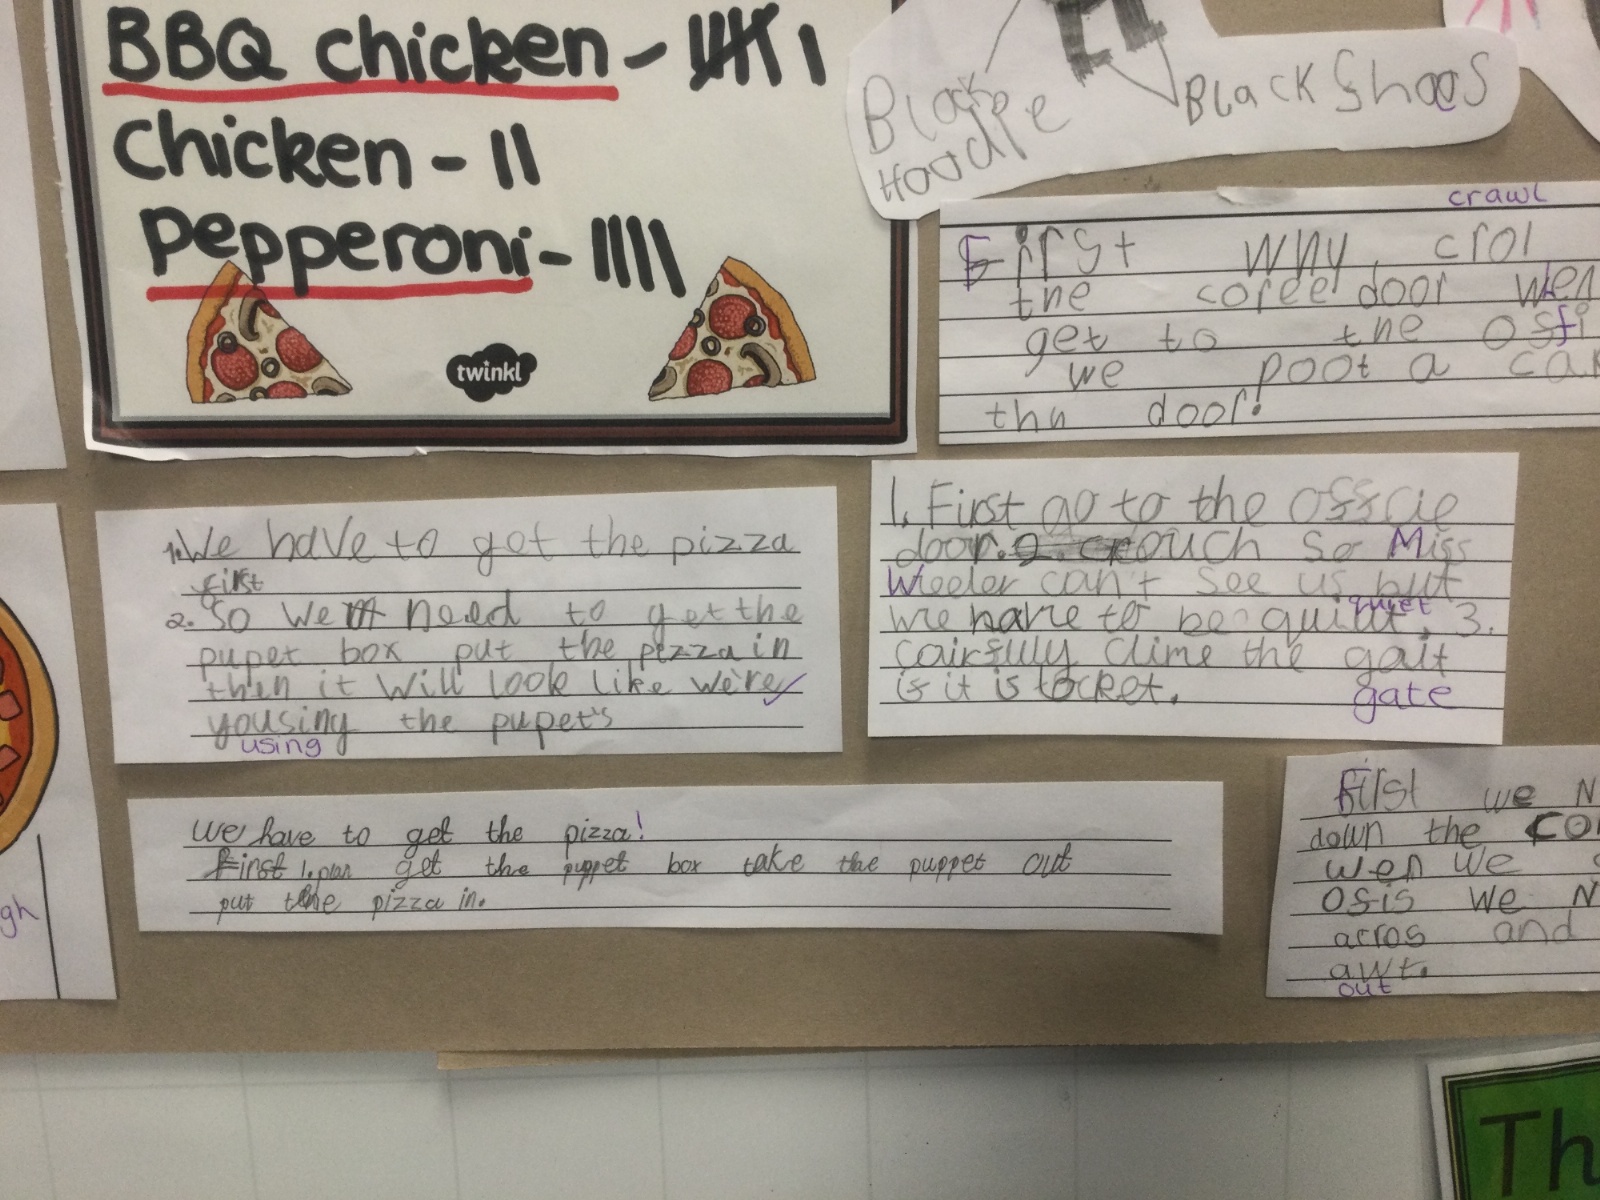 BBQ chicken -
Chicken -
Pepperoni -
twinkl
Black
Hoodie
Black Shoes
crawl
First why crol
the coree door wen
get to the offi
we poot a car
thu door.
1. We have to get the pizza
first
2. So we need to get the
pupet box put the pizza in
then it will look like we're
yousing the pupet's
using
1. First go to the offscie
door. 2. crouch so Miss
Wieeler can't see us but
quiet
we have to be quiut. 3.
cairfully clime the gait
is it is locket.
gate
We have to get the pizza!
First get the puppet box take the puppet out
put the pizza in.
First we N
down the cor
wen we
Osis we N
acros and
awt.
out
gh
Th